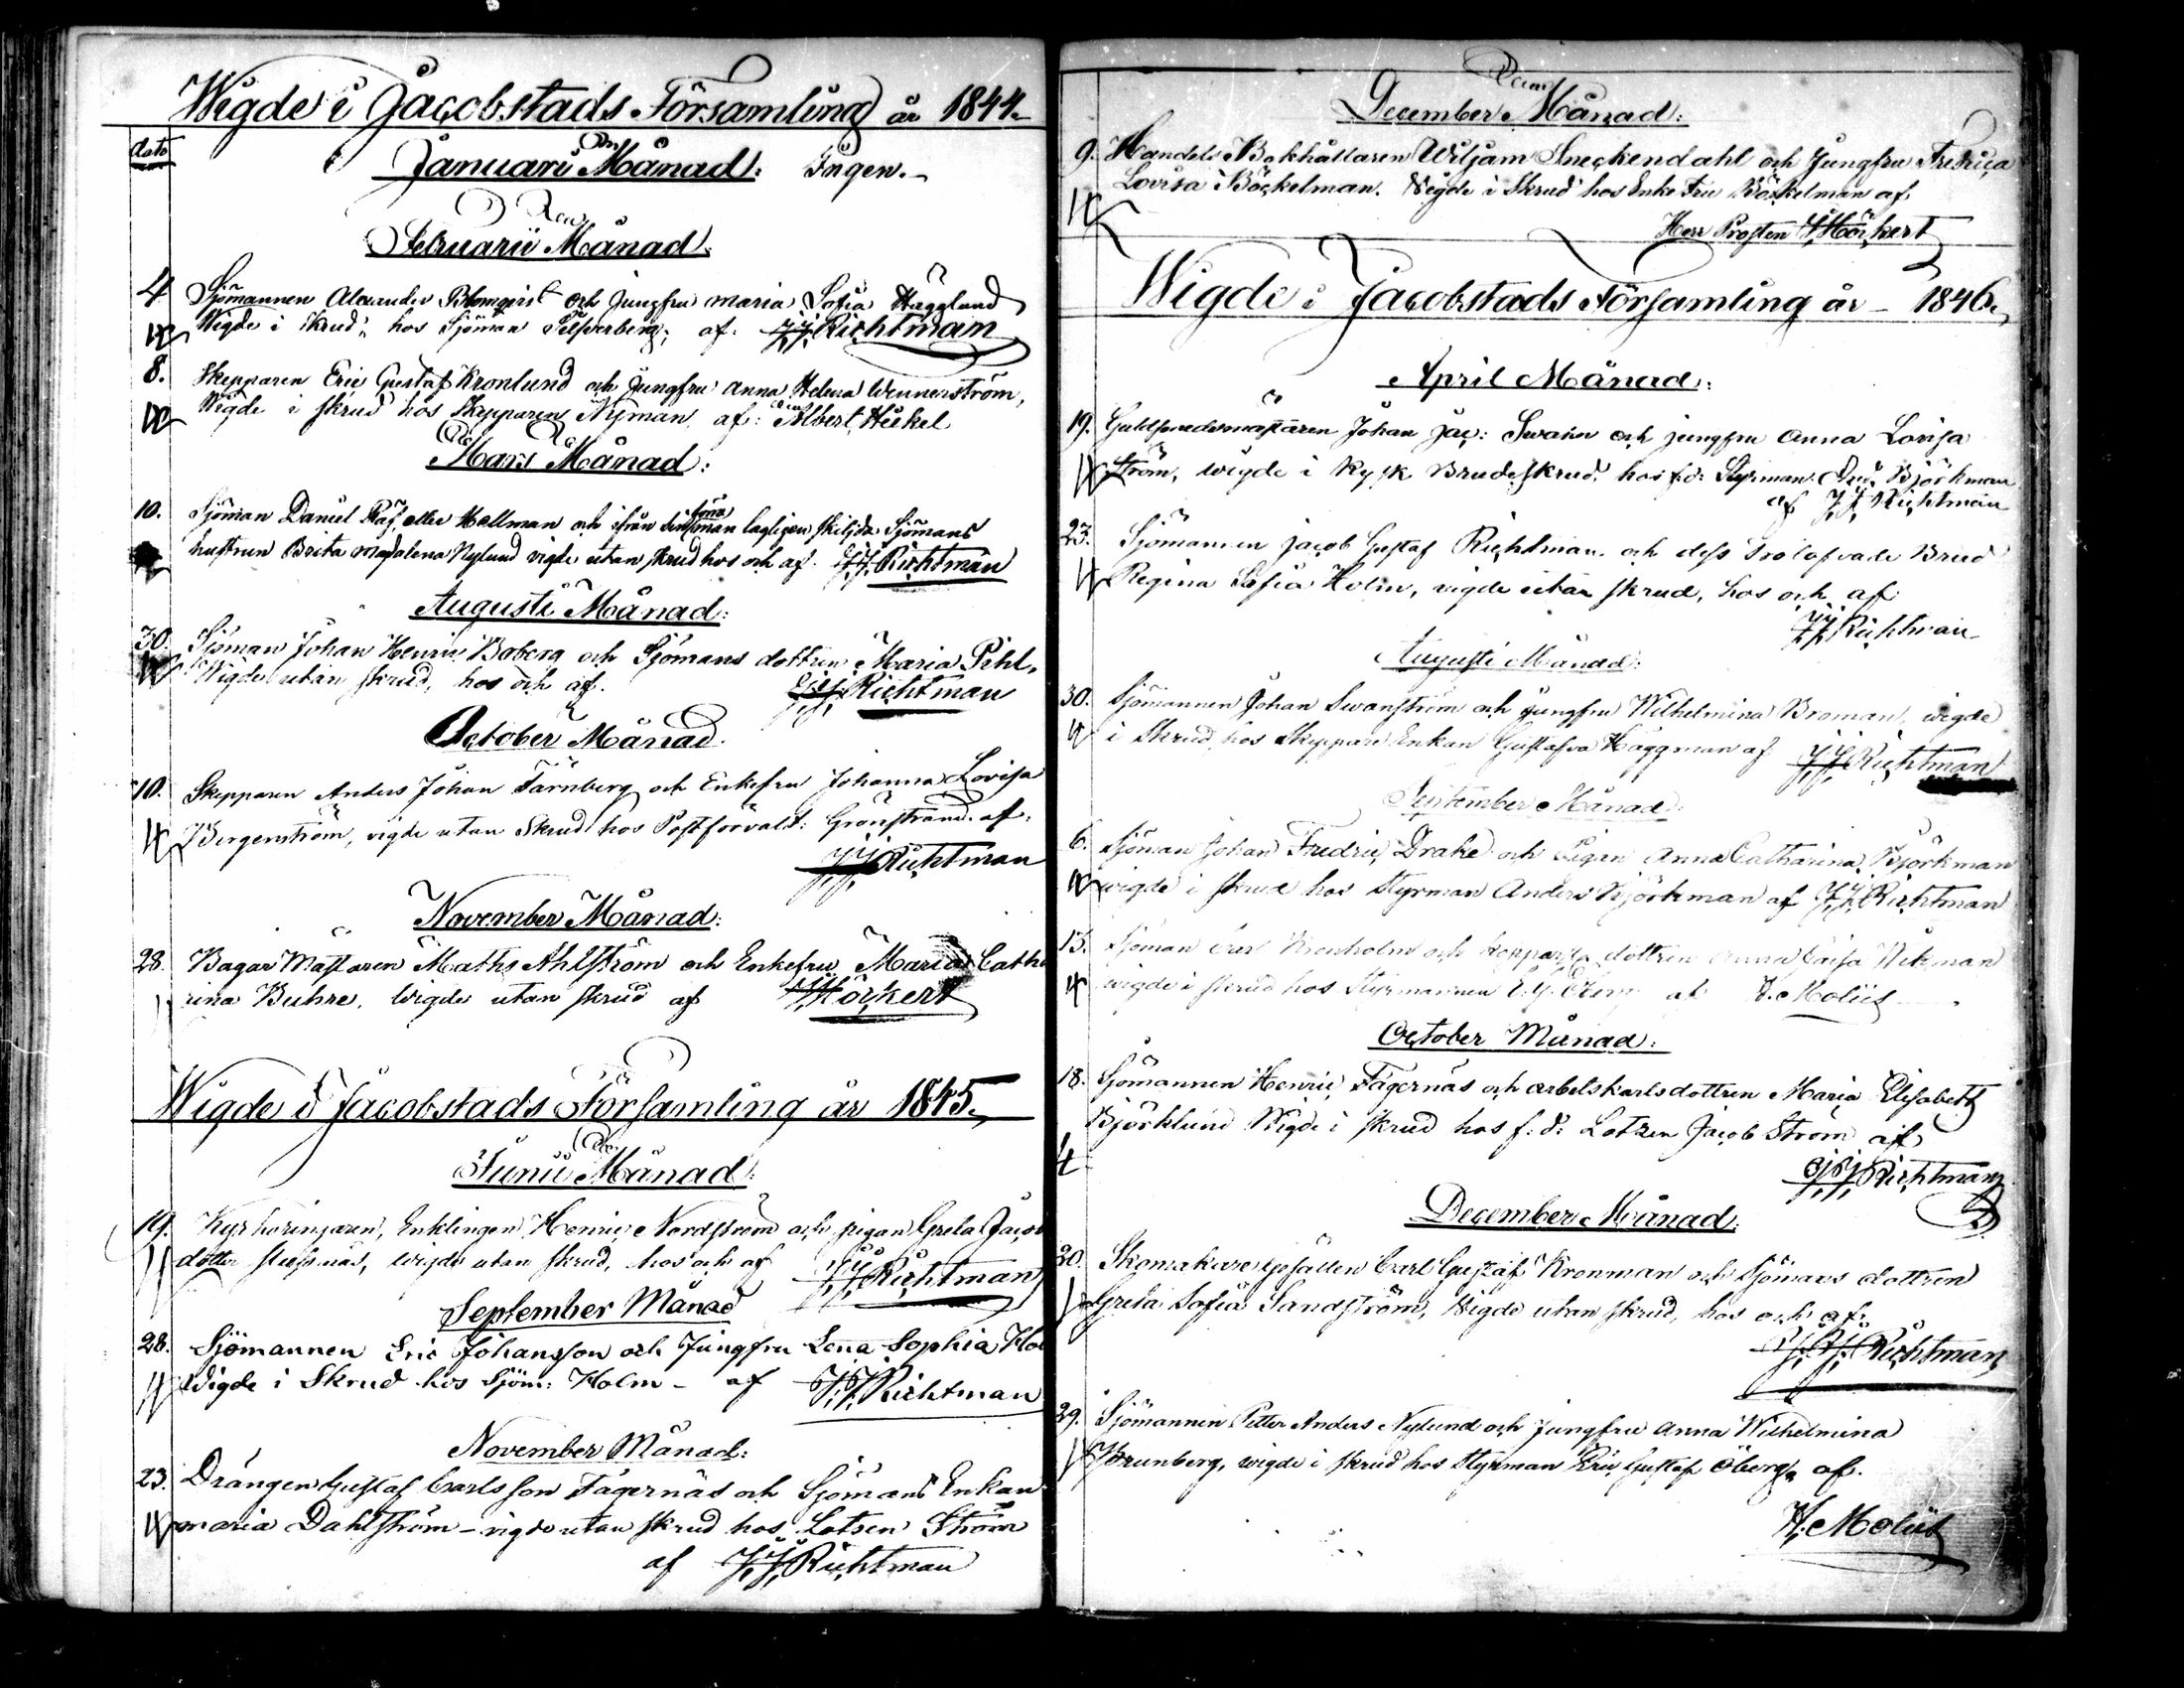 Wigde i Jacobstads Församling år 1844.
dato
Januari Månad: Ingen.
Februarii Månad.
4 Sjömannen Alexander Blomqvist och Jungfru Maria Sofia Hägglund
Wigde i skrud, hos Sjöman Silfverberg, af. J.J. Richtman
8. Skepparen Eric Gustaf Kronlund och Jungfru Anna Helena Wennerström,
Wigde i skrud hos Skepparen Nyman, af: Albert Heikel
Mars Månad:
10. Sjöman Daniel Räf eller Hellman och ifrån sin man lagligen skiljda Sjömans
hustrun Brita Magdalena Nylund vigde utan skrud hos och af. J.J. Richtman
Augusti Månad:
30. Sjöman Johan Henric Boberg och Sjömans dottren Maria Pihl,
Wigde utan skrud, hos och af. J.J. Richtman
October Månad.
10. Skepparen Anders Johan Tärnberg och Enkefru Johanna Lovisa
Bergenström, vigde utan Skrud hos Postförvalt: Grönstrand. af.
J.J. Richtman
November Månad:
28. Bagar Mästaren Maths Ahlström och Enkefru Maria Catha
rina Buhre, Wigde utan skrud af Hörkert
Wigde i Jacobstads Församling år 1845.
Junii Månad:
19. Enklingen Henric Nordström och pigan Greta Jacobs
dotter wigde utan skrud, hos och af J.J. Richtman
September Månad
28. Sjömannen Eric Johansson och Jungfru Lena Sophia Hol
Wigde i Skrud hos Sjöm: Holm - af J.J. Richtman
November Månad:
23. Drängen Gustaf Carlsson Fagernäs och Sjömans Enkan
Maria Dahlström - vigde utan skrud hos Lotsen Ström
af J.J. Richtman
December Månad:
9. Handels Bokhållaren Wiljam Sneckendahl och Jungfru Fredrica
Lovisa Böckelman. Wigde i Skrud hos Enke Fru Böckelman af.
Herr Prosten Hörkert
Wigde i Jacobstads Församling år - 1846.
April Månad:
19. Guldsmedsmästaren Johan Jac: Swahn och jungfru Anna Lovisa
Ström, wigde i Rysk Brudeskrud hos f.d. Styrman And: Björkman
af J.J. Richtman
23. Sjömannen Jacob Gustaf Richtman och dess Trolofvade Brud
Regina Sofia Holm, vigde utan skrud, hos och af
J.J. Richtman
Augusti Månad:
30. Sjömannen Johan Swanström och Jungfru Wilhelmina Broman, wigde
i Skrud, hos Skeppare Enkan Gustafva Häggman af J.J. Richtman
September Månad:
6. Sjöman Johan Fredric Drake och Pigan Anna Catharina Björkman
wigde i skrud hos Styrman Anders Björkman af J.J. Richtman
13. Sjöman Carl Kronholm och dottren Anna Caisa Wikman
wigde i skrud hos Styrmannen af H. Moliis
October Månad:
18. Sjömannen Henric Fagernäs och arbetskarlsdottren Maria Elisabeth
Björklund Wigde i skrud hos f.d. Lotsen Jacob Ström af
J.J. Richtman
December Månad:
20. Skomakare gesällen Carl Gustaf Kronman och Sjömans dottren
Greta Sofia Sandström, Wigde utan skrud, hos och af.
J.J. Richtman
29. Sjömannen Petter Anders Nylund och Jungfru Anna Wilhelmina
Brunberg, wigde i skrud hos Styrman Eric Gustaf Öberg, af.
H. Moliis